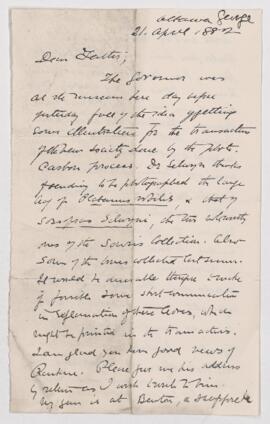 Ottawa
George
21. April. 1882
Dear Father;
The Governor was
at the museum here day before
yesterday full of the idea of getting
some illustrations for the transactions
of the new society done by the photo.
Carbon process. Dr Selwyn thinks
of sending to be photographed the large
leaf of Platanus nobilis, & that of
Sassafras Selwyni, the two
ones of the Souris Collection. Also
some of the ones collected last summer.
It would be desirable therefore to make
if possible some short communication
in explanation of these leaves, which
might be printed in the transactions.
I am glad you have good news of
Rankine. Please give me his address
by return as I wish to write to him.
My gun is at Boston, a